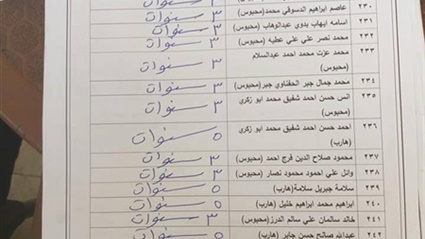 ٢٣٠ عاصم ابراهيم الدسوقي محمد(محبوس) ٣ سنوات
٢٣١ اسامه ايهاب بدوي عبدالوهاب(محبوس) ٣ سنوات
٢٣٢ محمد نصر علي علي عطيه (محبوس) ٣ سنوات
٢٣٣ محمد عزت محمد احمد عبدالسلام
(محبوس) ٣ سنوات
٢٣٤ محمد جمال جبر الحفناوي جبر(محبوس) ٣ سنوات
٢٣٥ انس حسن احمد شفيق محمد ابو زكري
(محبوس) ٣ سنوات
٢٣٦ احمد حسن احمد شفيق محمد ابو زكري
(هارب) ٥ سنوات
٢٣٧ محمود صلاح الدين فرج احمد (محبوس) ٣ سنوات
٢٣٨ وائل علي احمود محمود نصار (محبوس) ٣ سنوات
٢٣٩ سلامة جبريل سلامة(هارب) ٥ سنوات
٢٤٠ ابراهيم محمد ابراهيم خليل (هارب) ٥ سنوات
٢٤١ خالد سالمان علي سالم الدرز(محبوس) ٣ سنوات
٢٤٢ عبدالله صالح حسن جابر (هارب) ٥ سنوات